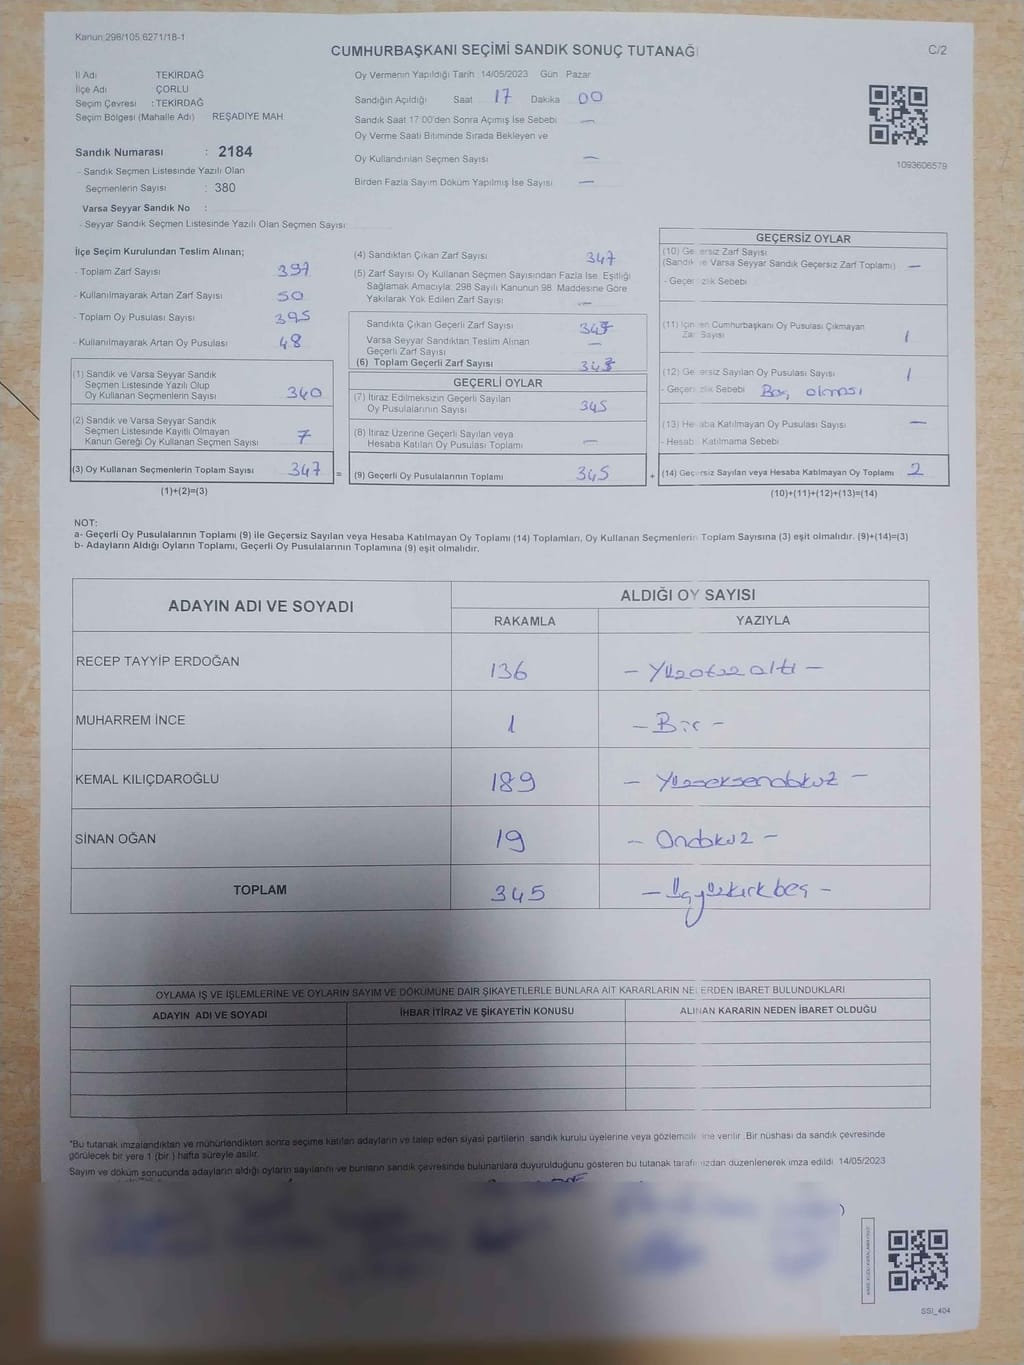 Kanun:298/105,6271/18-1
CUMHURBAŞKANI SEÇİMİ SANDIK SONUÇ TUTANAĞI
C/2
İl Adı TEKİRDAĞ
İlçe Adı ÇORLU
Seçim Çevresi : TEKİRDAĞ
Seçim Bölgesi (Mahalle Adı) REŞADİYE MAH
Sandık Numarası : 2184
- Sandık Seçmen Listesinde Yazılı Olan
Seçmenlerin Sayısı : 380
Varsa Seyyar Sandık No :
- Seyyar Sandık Seçmen Listesinde Yazılı Olan Seçmen Sayısı
Oy Vermenin Yapıldığı Tarih 14/05/2023 Gün Pazar
Sandığın Açıldığı Saat 17 Dakika 00
Sandık Saat 17:00'den Sonra Açımış İse Sebebi —
Oy Verme Saati Bitiminde Sırada Bekleyen ve
Oy Kullandırılan Seçmen Sayısı —
Birden Fazla Sayım Döküm Yapılmış İse Sayısı —
1093606579
İlçe Seçim Kurulundan Teslim Alınan;
- Toplam Zarf Sayısı 397
- Kullanılmayarak Artan Zarf Sayısı 50
- Toplam Oy Pusulası Sayısı 395
- Kullanılmayarak Artan Oy Pusulası 48
(1) Sandık ve Varsa Seyyar Sandık
Seçmen Listesinde Yazılı Olup
Oy Kullanan Seçmenlerin Sayısı 340
(2) Sandık ve Varsa Seyyar Sandık
Seçmen Listesinde Kayıtlı Olmayan
Kanun Gereği Oy Kullanan Seçmen Sayısı 7
(3) Oy Kullanan Seçmenlerin Toplam Sayısı 347 =
(1)+(2)=(3)
(4) Sandıktan Çıkan Zarf Sayısı 347
(5) Zarf Sayısı Oy Kullanan Seçmen Sayısından Fazla İse, Eşitliği
Sağlamak Amacıyla, 298 Sayılı Kanunun 98. Maddesine Göre
Yakılarak Yok Edilen Zarf Sayısı —
Sandıkta Çıkan Geçerli Zarf Sayısı 347
Varsa Seyyar Sandıktan Teslim Alınan
Geçerli Zarf Sayısı —
(6) Toplam Geçerli Zarf Sayısı
GEÇERLİ OYLAR
(7) İtiraz Edilmeksizin Geçerli Sayılan
Oy Pusulalarının Sayısı 345
(8) İtiraz Üzerine Geçerli Sayılan veya
Hesaba Katılan Oy Pusulası Toplamı —
(9) Geçerli Oy Pusulalarının Toplamı 345 +
GEÇERSİZ OYLAR
(10) Geçersiz Zarf Sayısı
(Sandık ve Varsa Seyyar Sandık Geçersiz Zarf Toplamı) —
- Geçersizlik Sebebi
(11) İçinden Cumhurbaşkanı Oy Pusulası Çıkmayan
Zarf Sayısı 1
(12) Geçersiz Sayılan Oy Pusulası Sayısı 1
- Geçersizlik Sebebi Boş olması
(13) Hesaba Katılmayan Oy Pusulası Sayısı —
- Hesaba Katılmama Sebebi
(14) Geçersiz Sayılan veya Hesaba Katılmayan Oy Toplamı 2
(10)+(11)+(12)+(13)=(14)
NOT:
a- Geçerli Oy Pusulalarının Toplamı (9) ile Geçersiz Sayılan veya Hesaba Katılmayan Oy Toplamı (14) Toplamları, Oy Kullanan Seçmenlerin Toplam Sayısına (3) eşit olmalıdır. (9)+(14)=(3)
b- Adayların Aldığı Oyların Toplamı, Geçerli Oy Pusulalarının Toplamına (9) eşit olmalıdır.
ADAYIN ADI VE SOYADI
ALDIĞI OY SAYISI
RAKAMLA YAZIYLA
RECEP TAYYİP ERDOĞAN 136 – Yüzotuzaltı –
MUHARREM İNCE 1 – Bir –
KEMAL KILIÇDAROĞLU 189 – Yüzseksendokuz –
SİNAN OĞAN 19 – Ondokuz –
TOPLAM 345 – Üçyüzkırkbeş –
OYLAMA İŞ VE İŞLEMLERİNE VE OYLARIN SAYIM VE DÖKÜMÜNE DAİR ŞİKAYETLERLE BUNLARA AİT KARARLARIN NELERDEN İBARET BULUNDUKLARI
ADAYIN ADI VE SOYADI İHBAR İTİRAZ VE ŞİKAYETİN KONUSU ALINAN KARARIN NEDEN İBARET OLDUĞU
*Bu tutanak imzalandıktan ve mühürlendikten sonra seçime katılan adayların ve talep eden siyasi partilerin sandık kurulu üyelerine veya gözlemcilerine verilir. Bir nüshası da sandık çevresinde
görülecek bir yere 1 (bir ) hafta süreyle asılır.
Sayım ve döküm sonucunda adayların aldığı oyların sayılarını ve bunların sandık çevresinde bulunanlara duyurulduğunu gösteren bu tutanak tarafımızdan düzenlenerek imza edildi. 14/05/2023
SSI_404